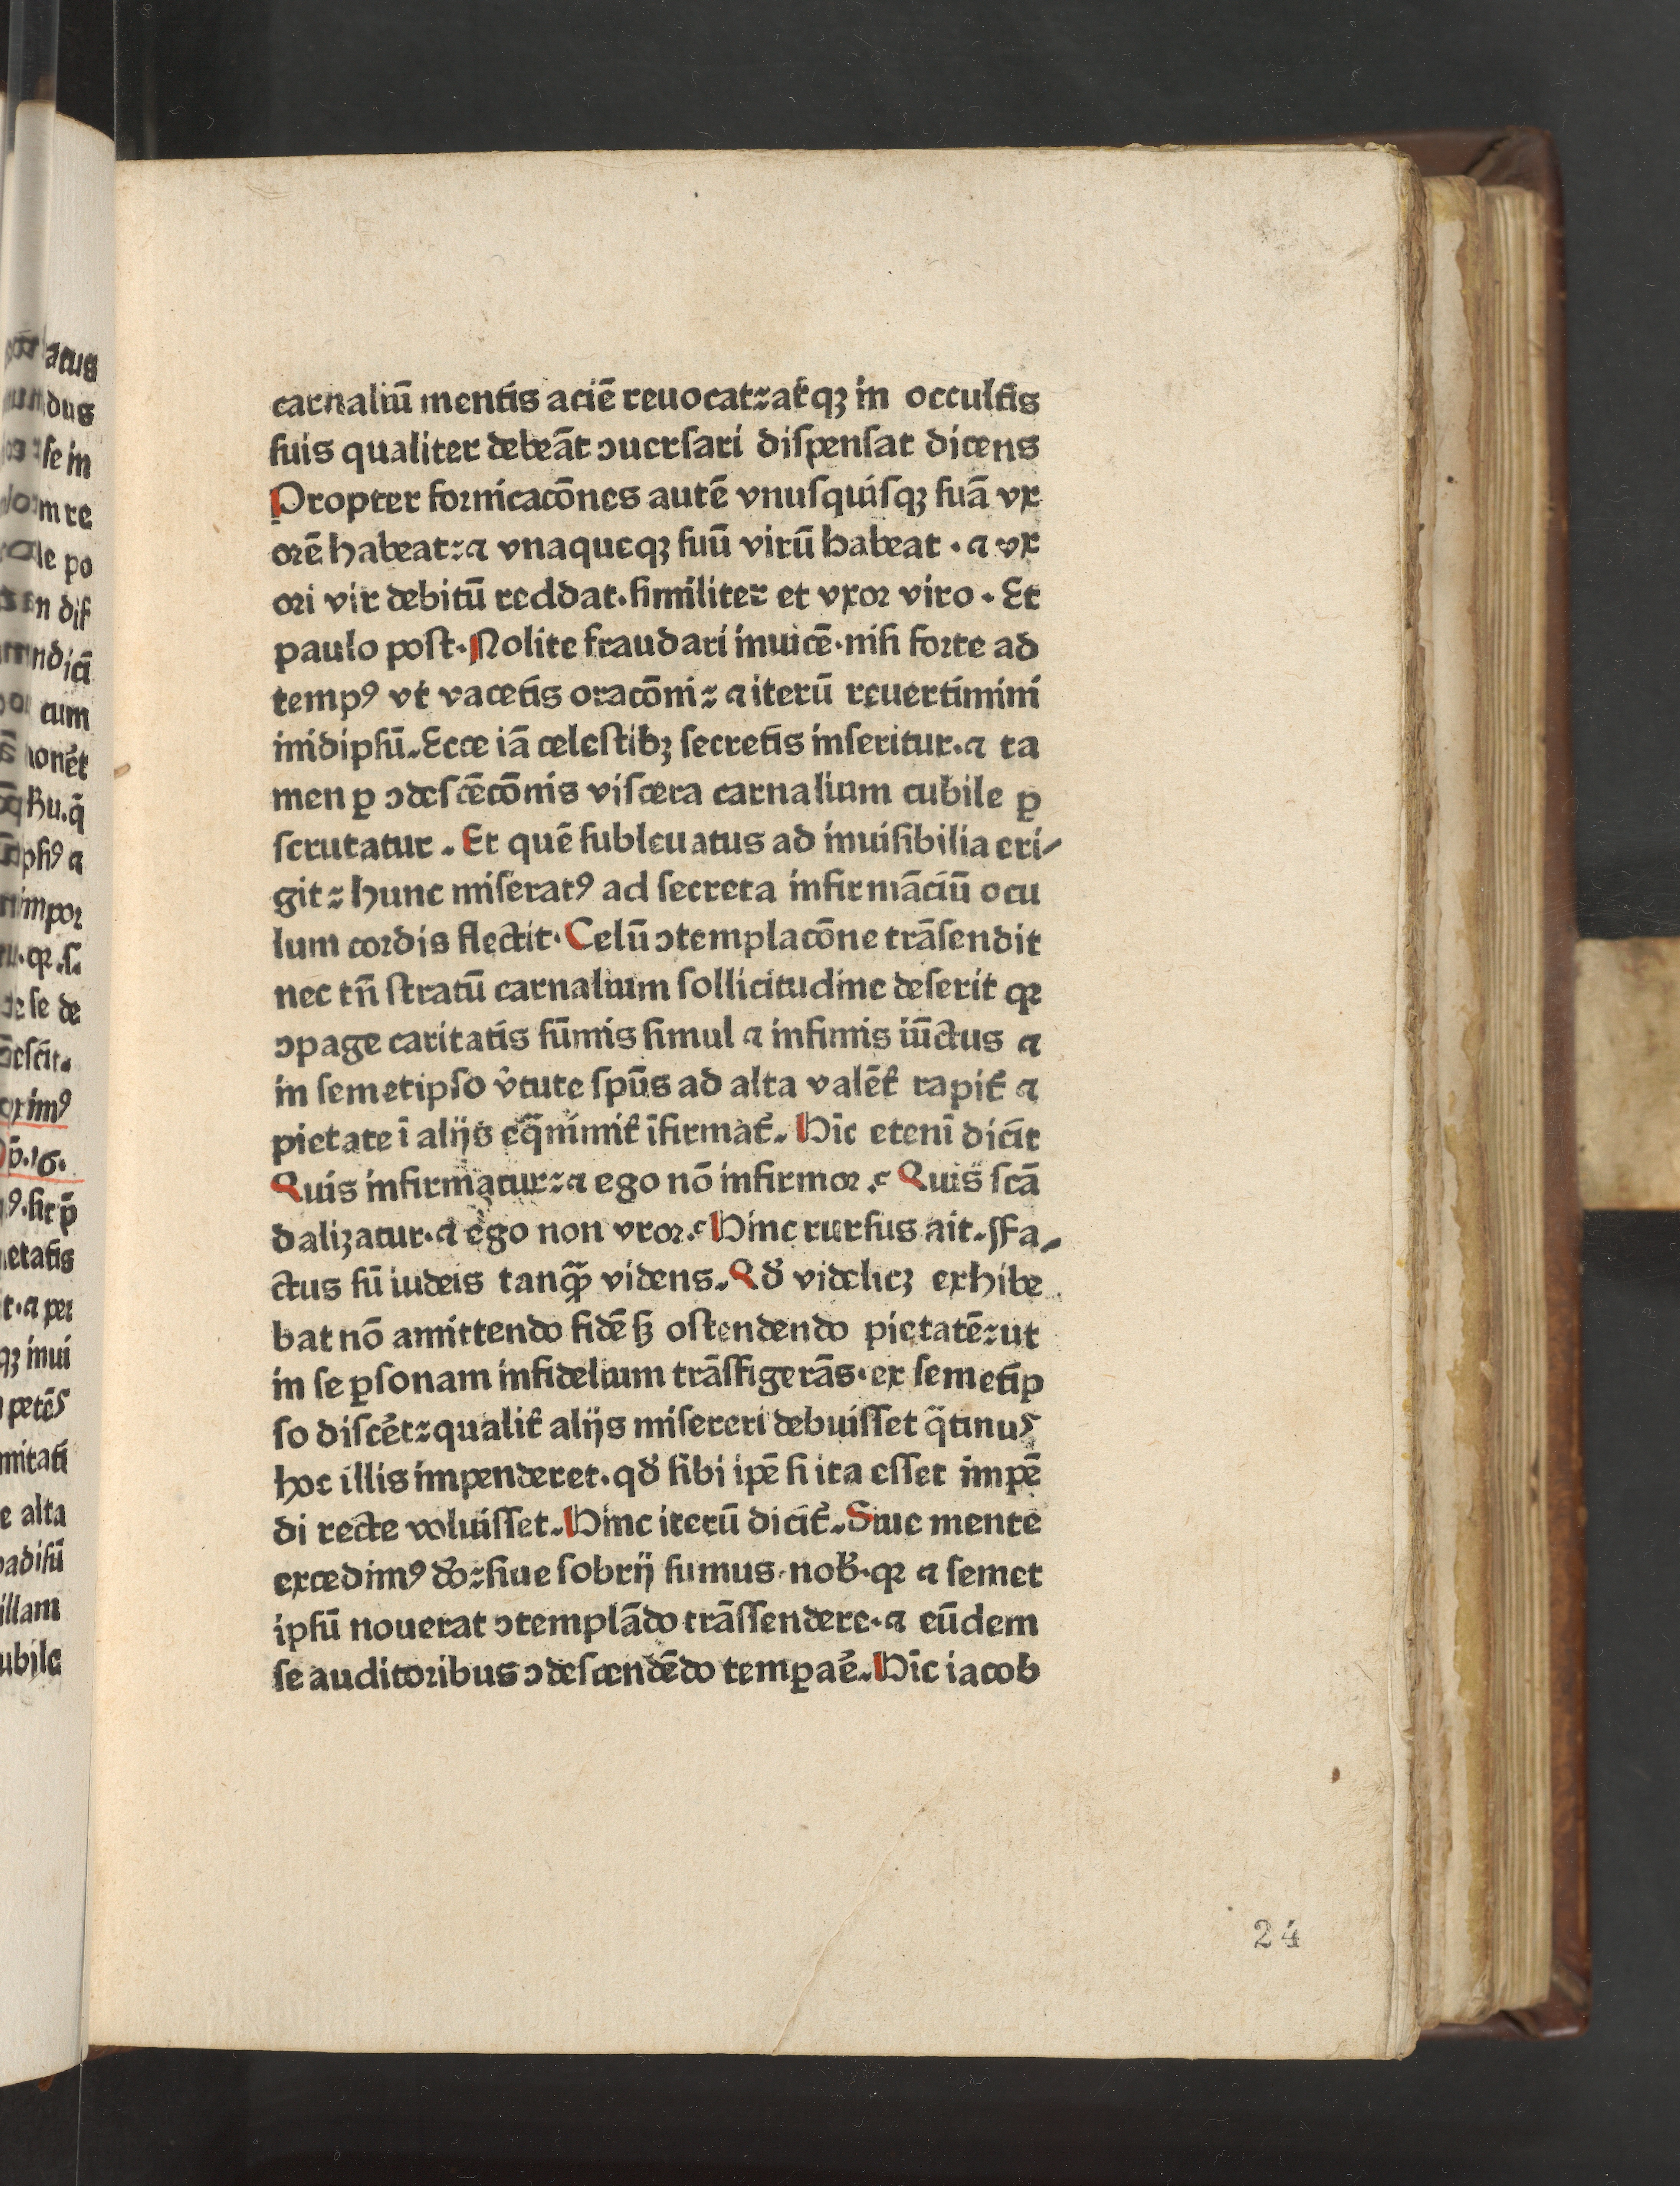 carnaliū mentis aciē reuocat: atqꝫ in occultis
suis qualiter debeāt ꝯuersari dispensat dicens
Propter fornicacōnes autē vnusquisqꝫ suā vx
orē habeat: ⁊ vnaqueqꝫ suū virū habeat . ⁊ vx
ori vir debitū reddat. similiter et vxor viro . Et
paulo post. Nolite fraudari inuicē. nisi forte ad
tempꝰ vt vacetis oracōni: ⁊ iterū reuertimini
inidipsū. Ecce iā celestibꝫ secretis inseritur. ⁊ ta
men ꝑ ꝯdescēcōnis viscera carnalium cubile ꝑ
scrutatur . Et quē subleuatus ad inuisibilia eri/
git: hunc miseratꝰ ad secreta infirmāciū ocu
lum cordis flectit. Celū ꝯtemplacōne trāsendit
nec tn̄ stratū carnalium sollicitudine deserit qꝛ
ꝯpage caritatis sūmis simul ⁊ infimis iūctus ⁊
in semetipso v̓tute spūs ad alta valēt̓ rapit̓ ⁊
pietate ī alijs eq̄nimit̓ īfirmat̓. Hīc etenī dicit
Quis infirmatur: ⁊ ego nō infirmor.? Quis scā
dalizatur. ⁊ ego non vror.? Hinc rursus ait. Fa/
ctus sū iudeis tanqꝫ̄ videns. Qd̓ videlicꝫ exhibe
bat nō amittendo fidē sꝫ ostendendo pietatē: ut
in se ꝑsonam infidelium trāsfigerās. ex semetip
so discēt: qualit̓ alijs misereri debuisset q̄tinus
hoc illis impenderet. qd̓ sibi ipē si ita esset impē
di recte voluisset. Hinc iterū dicit̓. Siue mente
excedimꝰ do̓: siue sobrij sumus. nob̓. qꝛ ⁊ semet
ipsū nouerat ꝯtemplādo trāssendere. ⁊ eūdem
se auditoribus ꝯdescendēdo temꝑae̓. Hīc iacob
24